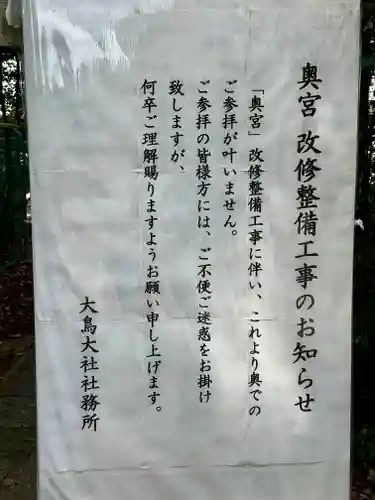 奥宮 改修整備工事のお知らせ
「奥宮」改修整備工事に伴い、これより奥での
ご参拝が叶いません。
ご参拝の皆様方には、ご不便ご迷惑をお掛け
致しますが、
何卒ご理解賜りますようお願い申し上げます。
大鳥大社社務所